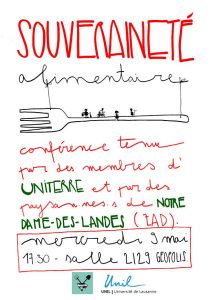 SOUVERAINETÉ
alimentaire
conférence tenue
par des membres d'
UNITERRE et par des
paysannes.s de NOTRE
DAME-DES-LANDES (ZAD).
mercredi 9 mai
17:30 - salle 2129 GÉOPOLIS
Unil
UNIL | Université de Lausanne